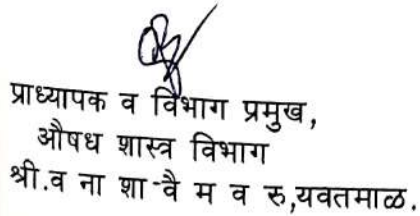 प्राध्यापक व विभाग प्रमुख,
औषध शास्त्र विभाग
श्री.व ना शा-वै म व रु,यवतमाळ.